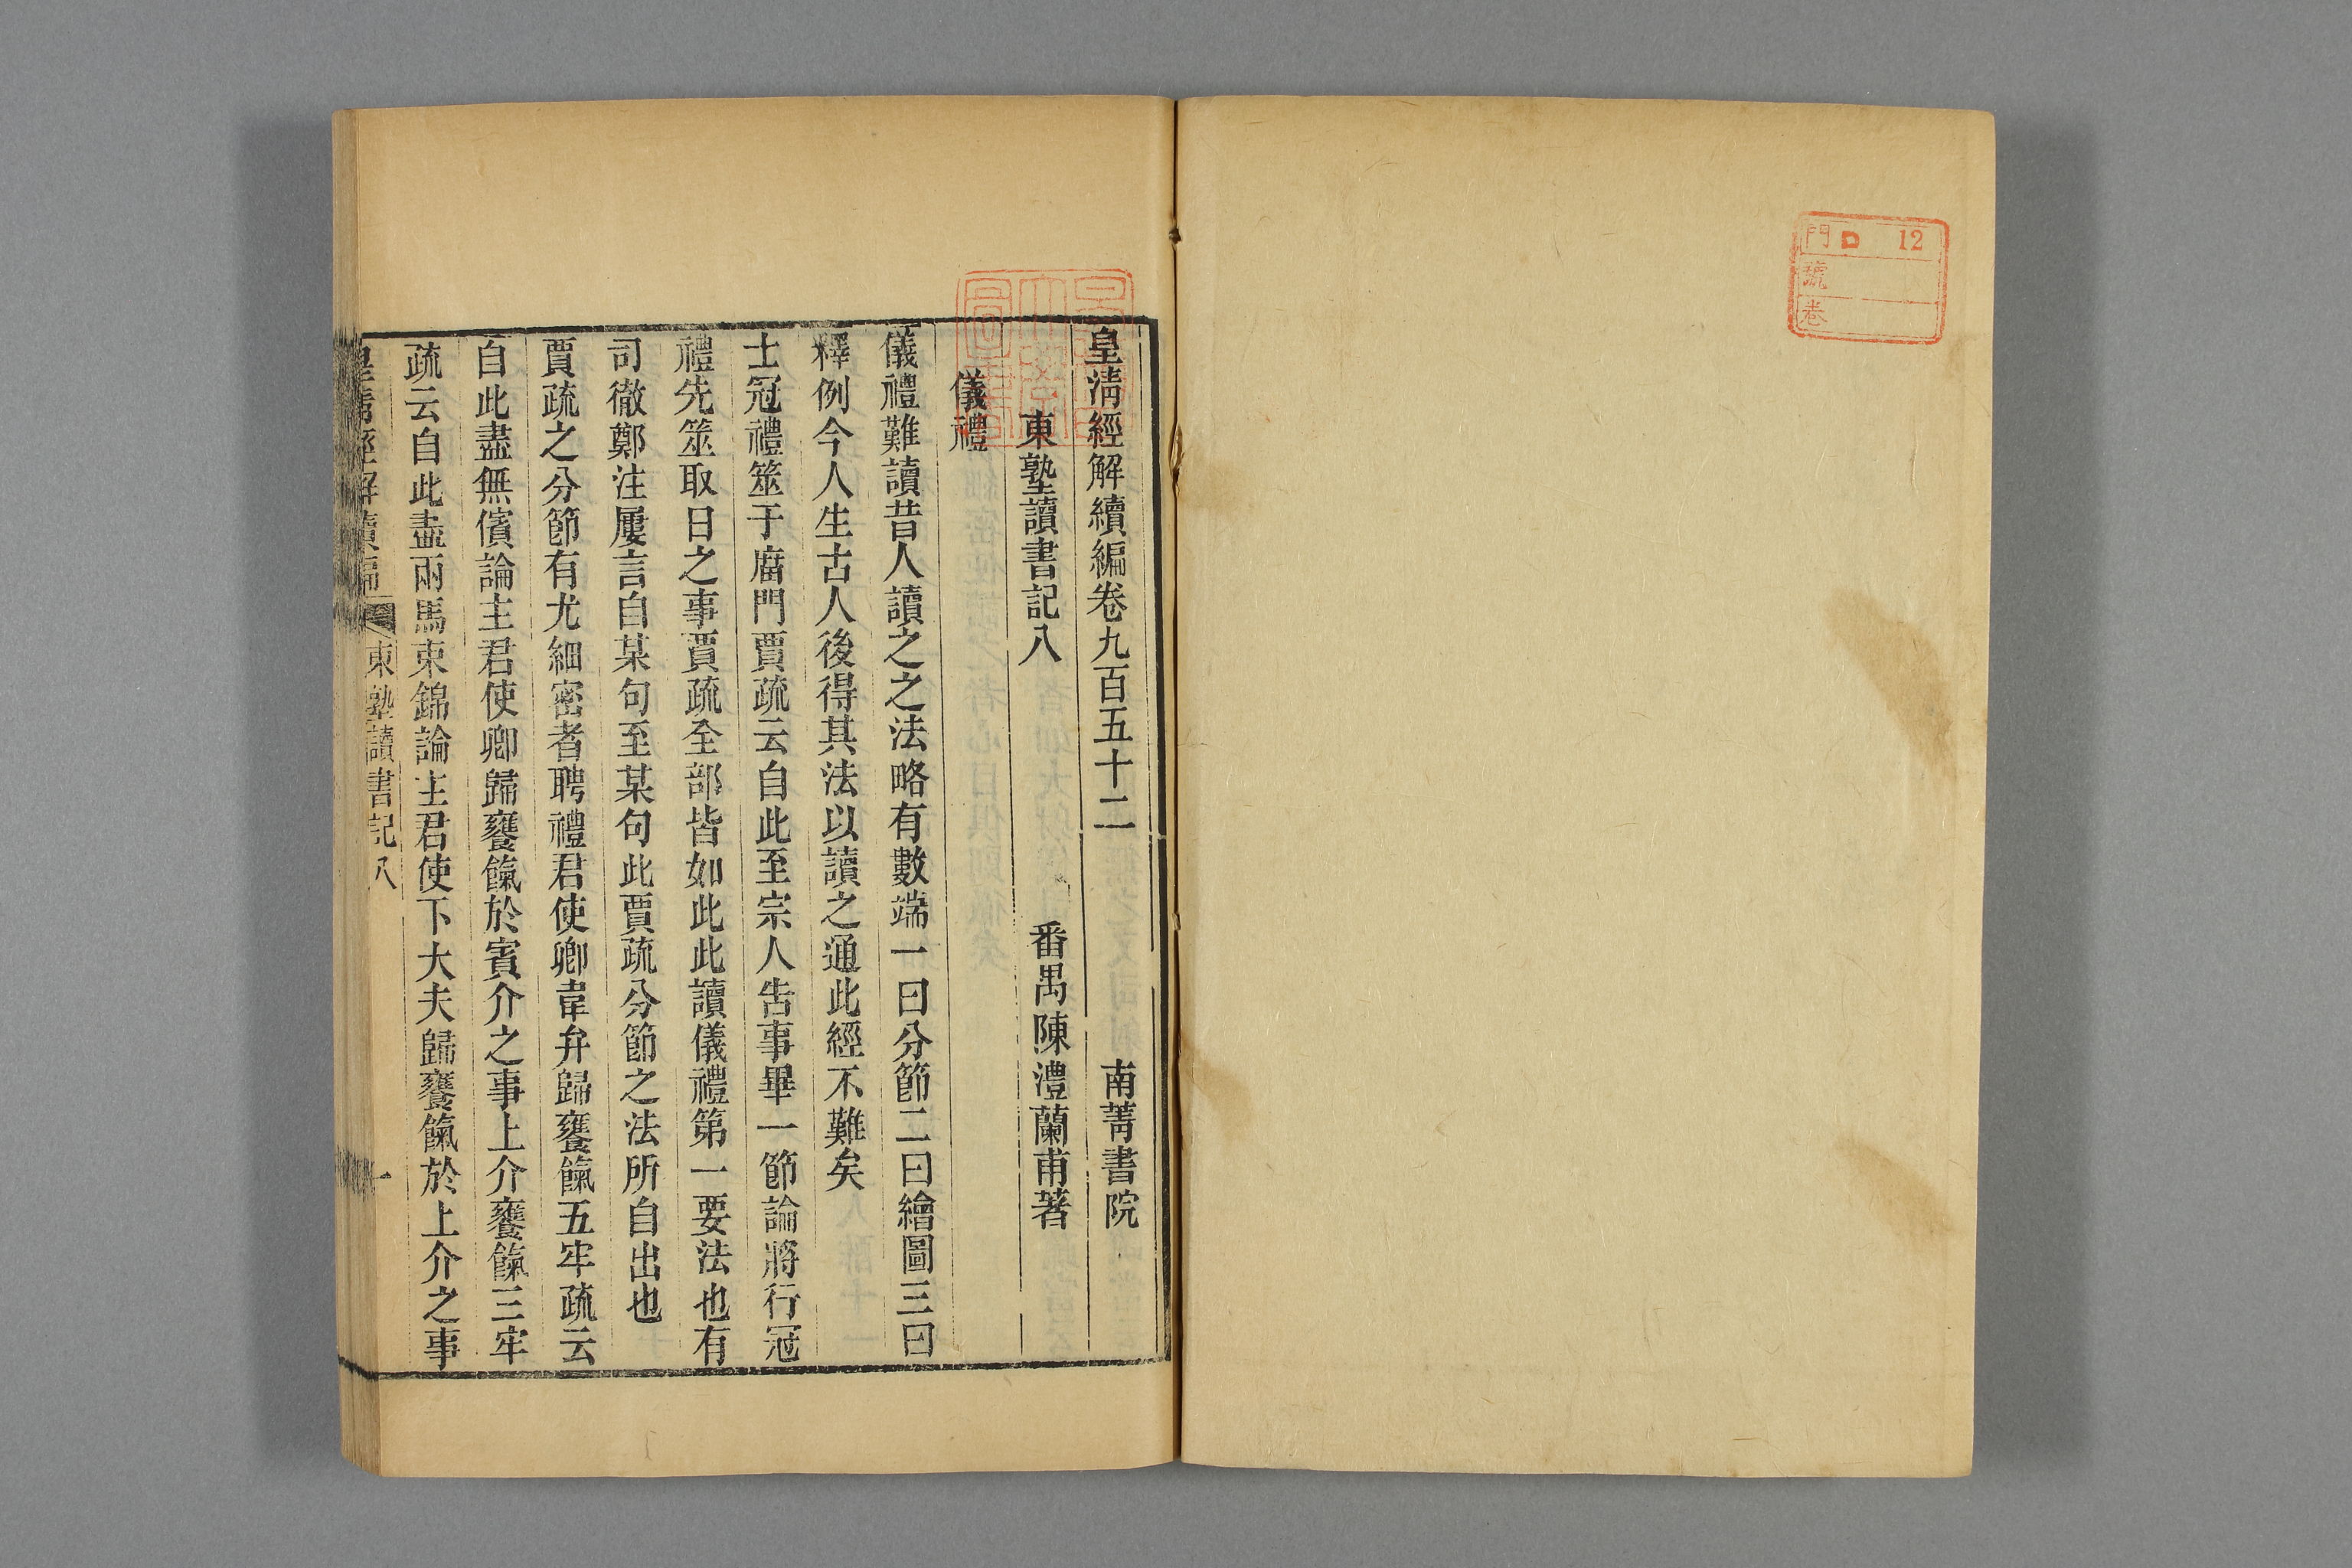 門 ロ 12
號
卷
皇清經解續編卷九百五十二 南菁書院
東塾讀書記八 番禺陳澧蘭甫著
儀禮
儀禮難讀昔人讀之之法略有數端一曰分節二曰繪圖三曰
釋例今人生古人後得其法以讀之通此經不難矣
士冠禮筮于廟門賈疏云自此至宗人告事畢一節論將行冠
禮先筮取日之事賈疏全部皆如此此讀儀禮第一要法也有
司徹鄭注屢言自某句至某句此賈疏分節之法所自出也
賈疏之分節有尤細密者聘禮君使卿韋弁歸饔餼五牢疏云
自此盡無儐論主君使卿歸饔餼於賓介之事上介饔餼三牢
疏云自此盡兩馬束錦論主君使下大夫歸饔餼於上介之事
皇清經解續編 東塾讀書記八 一